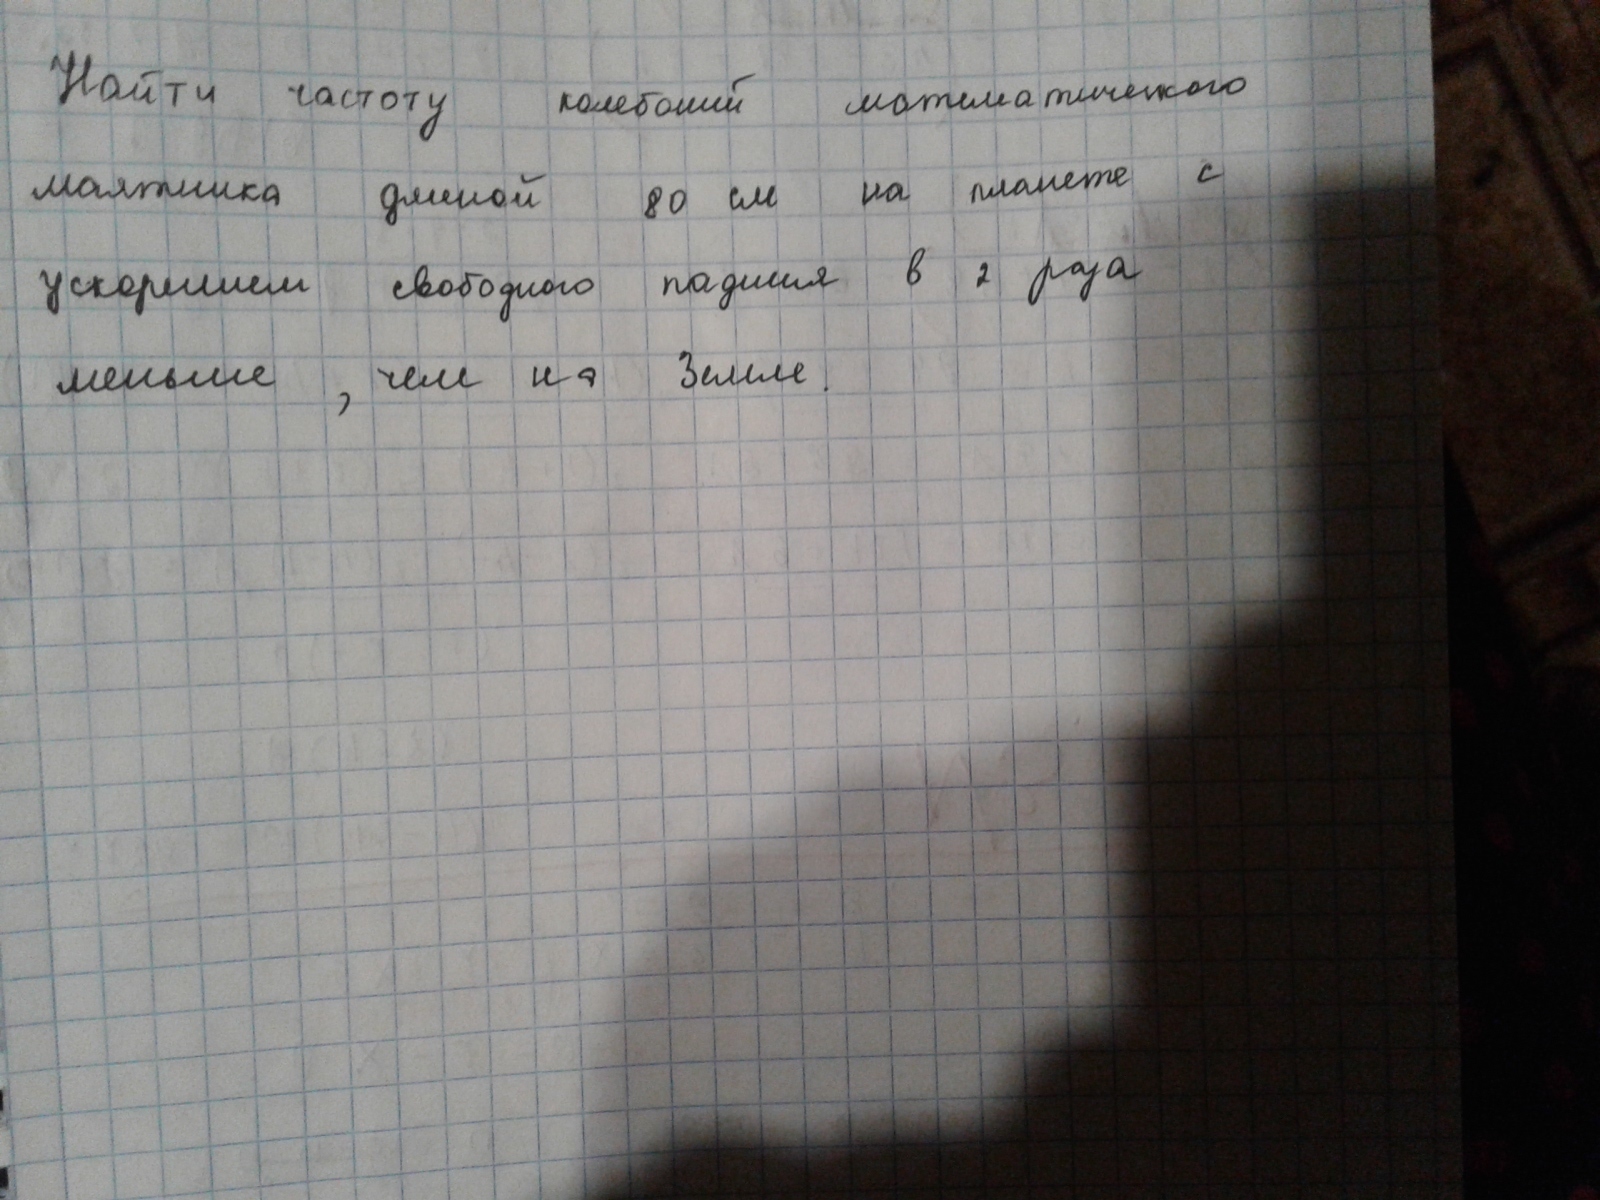 Найти частоту колебаний математического
маятника длиной 80 см на планете с
ускорением свободного падения в 2 раза
меньше, чем на Земле.